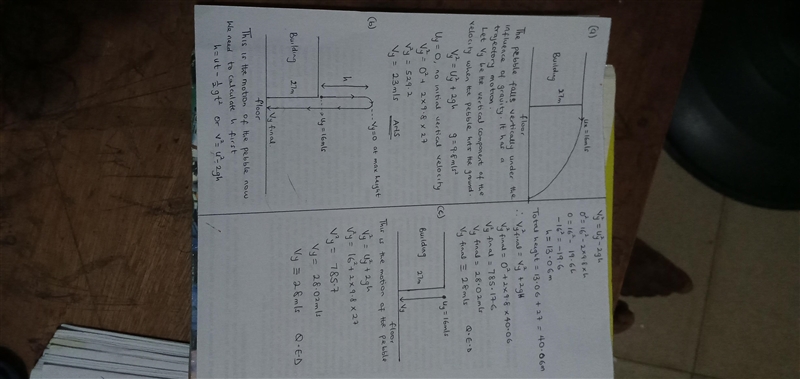 (a)
Building 27m
ux=16m/s
floor
The pebble falls vertically under the
influence of gravity. It has a
trajectory motion.
Let Vy be the vertical component of the
velocity when the pebble hits the ground
V²y = U²y + 2gh g = 9.8m/s²
Uy = 0, no initial vertical velocity
V²y = 0² + 2×9.8×27
V²y = 529.2
Vy = 23m/s Ans
(b)
Vy=0 at max height
h
Uy=16m/s
Building 27m
floor
Vy final
This is the motion of the pebble now
We need to calculate h first
h = ut - ½gt² or v² = u² - 2gh
V²y = U²y - 2gh
0² = 16² - 2×9.8×h
0 = 16² - 19.6h
-16² = -19.6
h = 13.06m
Total height = 13.06 + 27 = 40.06m
∴ V²y final = Vy² + 2gH
V²y final = 0² + 2×9.8×40.06
Vy final = 785.176
Vy final = 28.02m/s
Vy final ≡ 28m/s Q.E.D
(c)
Uy=16m/s
Building 27m
floor
Vy
This is the motion of the pebble
V²y = U²y + 2gh
V²y = 16² + 2×9.8×27
V²y = 785.7
Vy = 28.02m/s
Vy ≡ 28m/s Q.E.D